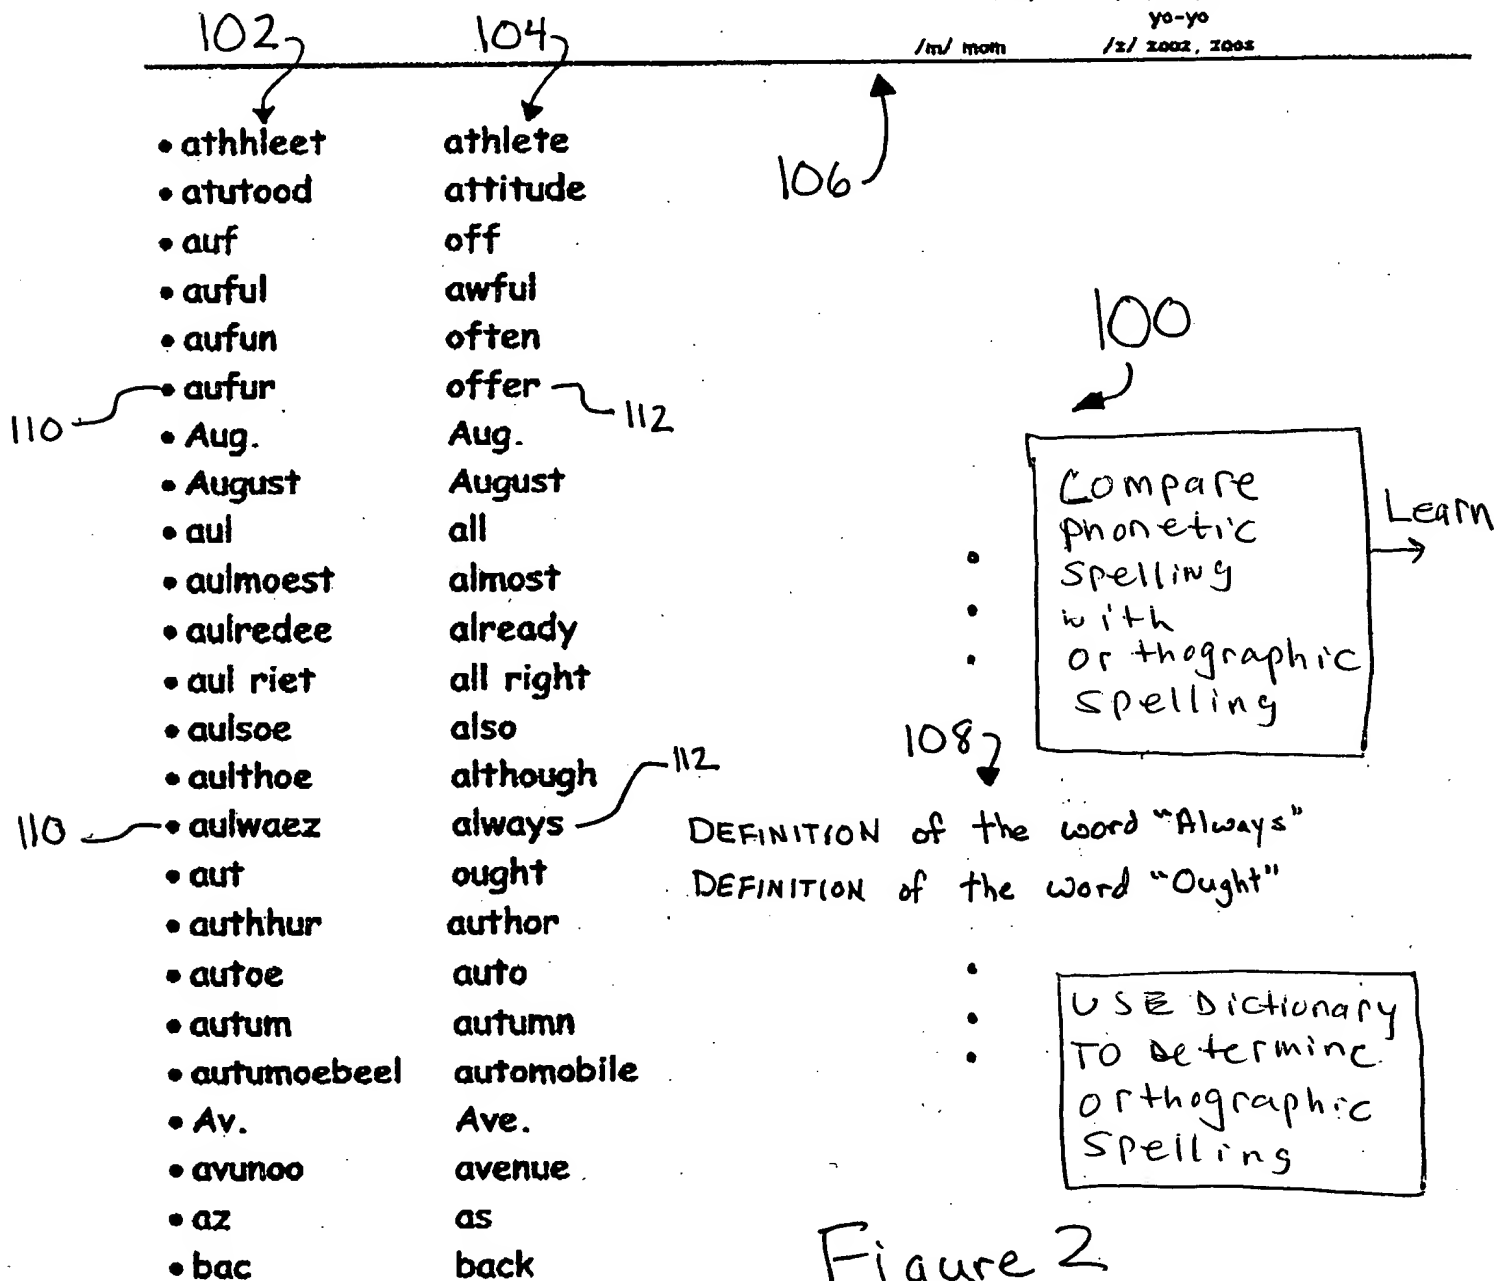 yo-yo
/m/ mom /z/ zooz, zoos
102 104
• athhleet athlete
106
• atutood attitude
• auf off
• auful awful
100
• aufun often
110 • aufur offer 112
• Aug. Aug.
• August August
• aul all
• aulmoest almost
• aulredee already
• aul riet all right
• aulsoe also
• aulthoe although 112
110 • aulwaez always
• aut ought
• authhur author
• autoe auto
• autum autumn
• autumoebeel automobile
• Av. Ave.
• avunoo avenue
• az as
• bac back
Compare
phonetic
spelling
with
orthographic
spelling
Learn
108
DEFINITION of the word "Always"
DEFINITION of the word "Ought"
USE Dictionary
TO Determine
orthographic
spelling
Figure 2